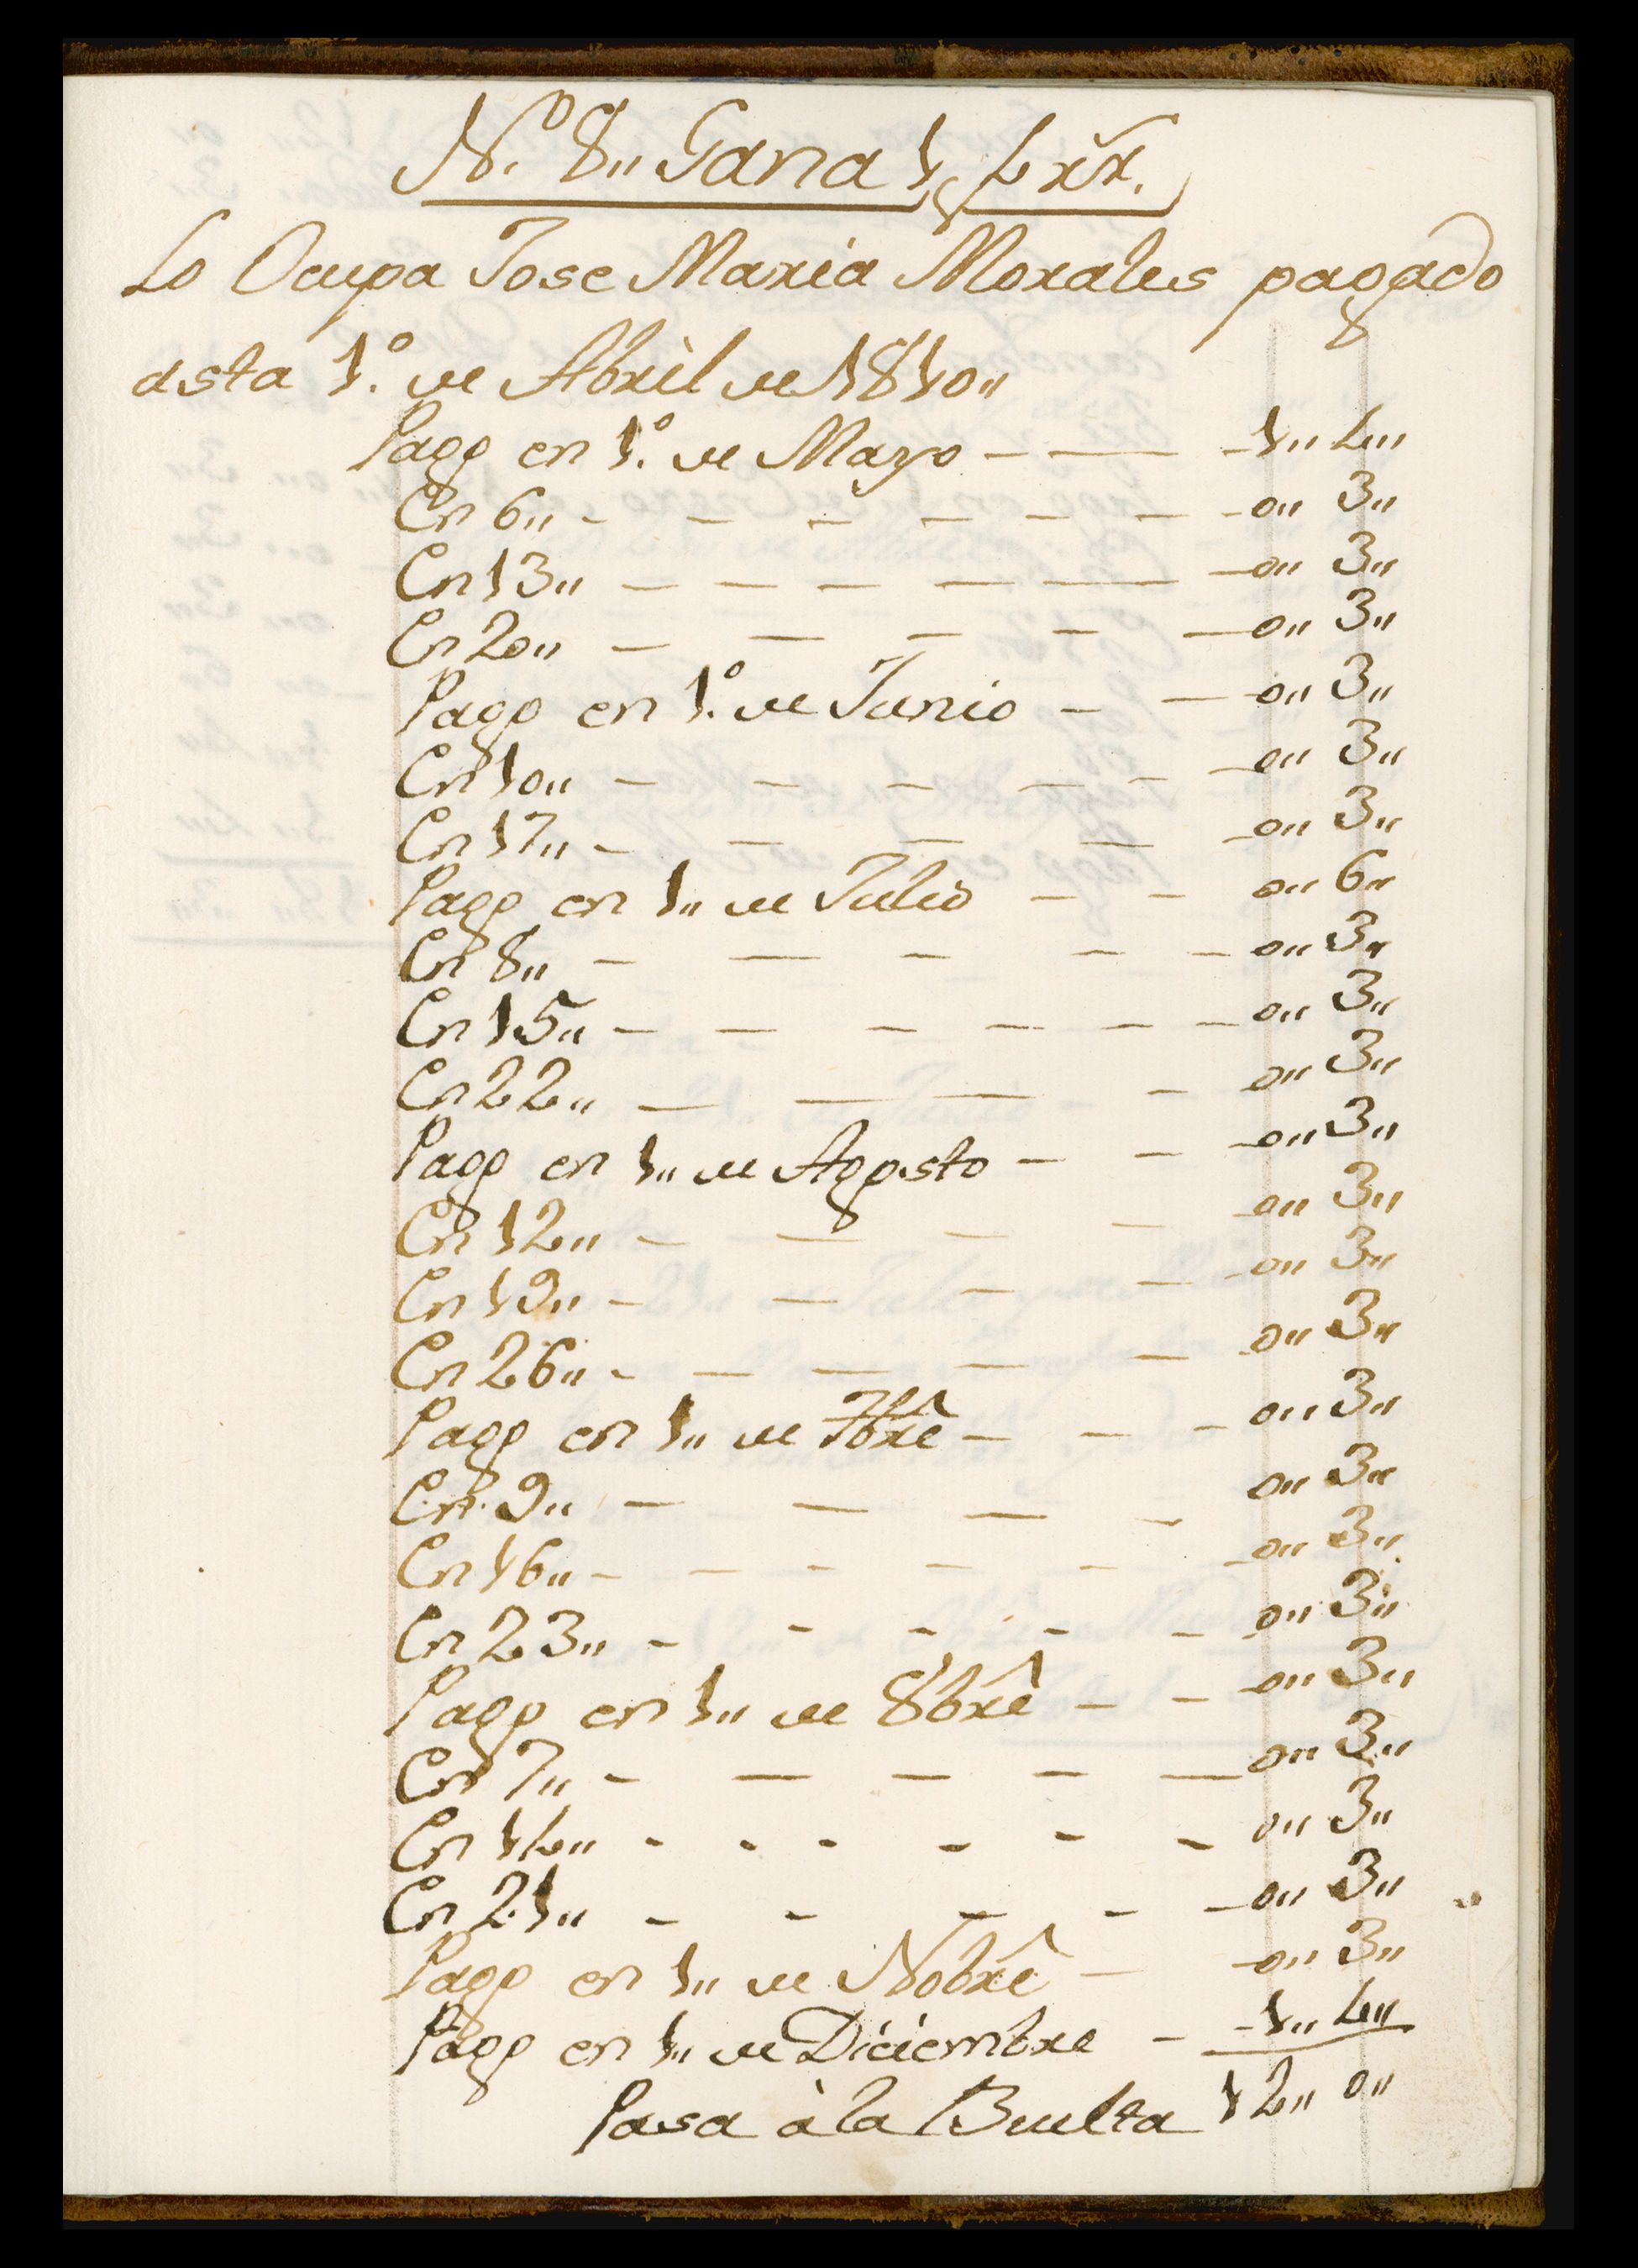 N.º 8,, Gana 1 p 4 rr.
Lo Ocupa Jose Maria Morales pagado
asta 1.º de Abril de 1810,,
Pago en 1.º de Mayo — — - 1,, 4,,
En 6,, - - - - - - - 0,, 3,,
En 13,, — — — — — — 0,, 3,,
En 20,, — — — — — 0,, 3,,
Pago en 1.º de Junio - — 0,, 3,,
En 10,, - - - - - - 0,, 3,,
En 17,, - - - - - 0,, 3,,
Pago en 1,, de Julio - - 0,, 6,,
En 8,, - — - - - 0,, 3,,
En 15,, - - - - - - 0,, 3,,
En 22,, — — — - 0,, 3,,
Pago en 1,, de Agosto - - - 0,, 3,,
En 12,, - — - - - 0,, 3,,
En 19,, - - - - - 0,, 3,,
En 26,, - - - - - 0,, 3,,
Pago en 1,, de 7brê - - - 0,, 3,,
En 9,, - — — - 0,, 3,,
En 16,, - - - - - - 0,, 3,,
En 23,, - - - - - 0,, 3,,
Pago en 1,, de 8brê - - - 0,, 3,,
En 7,, - — - - — 0,, 3,,
En 14,, - - - - - - 0,, 3,,
En 21,, - - - - - 0,, 3,,
Pago en 1,, de Nobrê - - 0,, 3,,
Pago en 1,, de Diciembre - - 1,, 4,,
Pasa à la Buelta 12,, 0,,